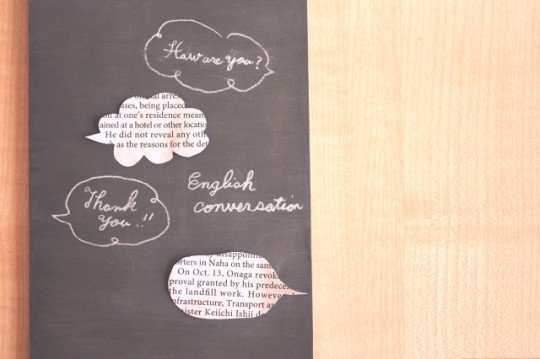 How are you?
arres
ases, being placed
on at one's residence mean
ained at a hotel or other locatio
He did not reveal any oth
h as the reasons for the det
Thank
You..!!
English
conversation
disappointe
orters in Naha on the sam
On Oct. 13, Onaga revok
proval granted by his predece
the landfill work. Howeve
nfrastructure, Transport an
nister Keiichi Ishii d